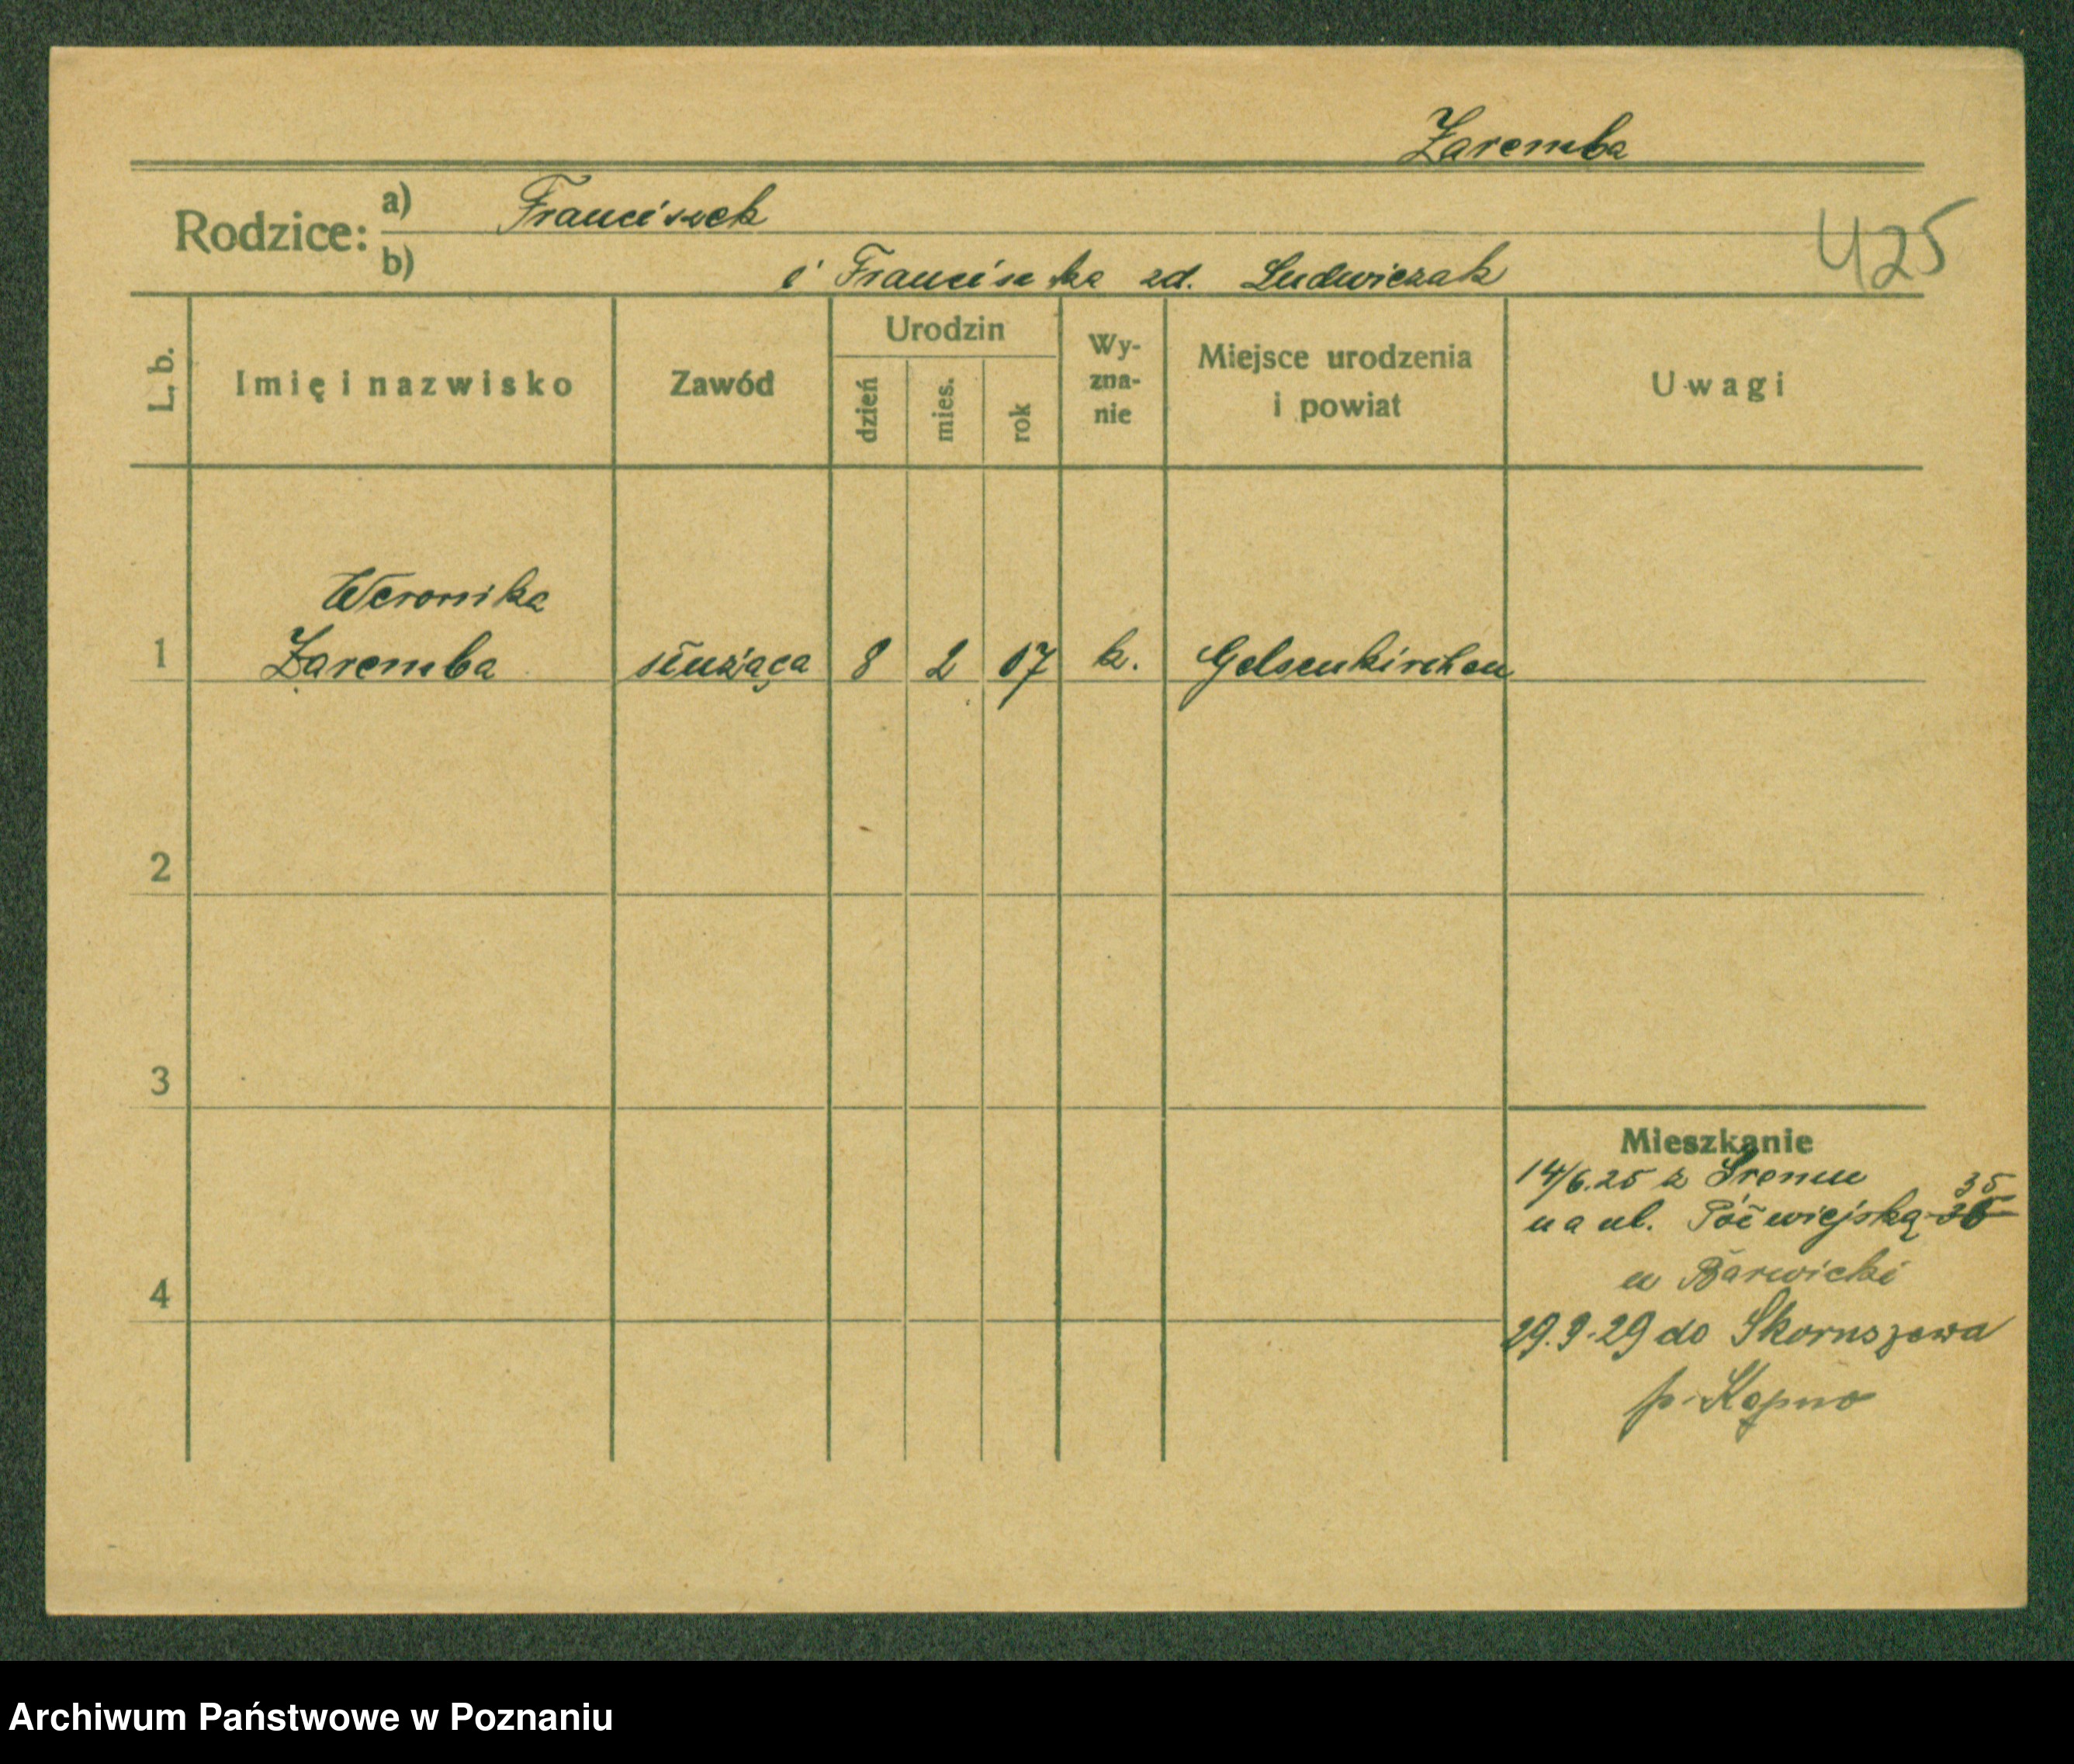 Zaremba
Rodzice: a) Franciszek
b) i Franciszka zd. Ludwiczak
425
L. b.
Imię i nazwisko
Zawód
Urodzin
dzień
mies.
rok
Wy-
zna-
nie
Miejsce urodzenia
i powiat
Uwagi
Weronika
1 Zaremba służąca 8 2 07 k. Gelsenkirchen
2
3
Mieszkanie
14/6.25 z Śremu
35
na ul. Półwiejską 36
u Barwicki
4
29.9.29 do Skoruszewa
p. Kępno
Archiwum Państwowe w Poznaniu